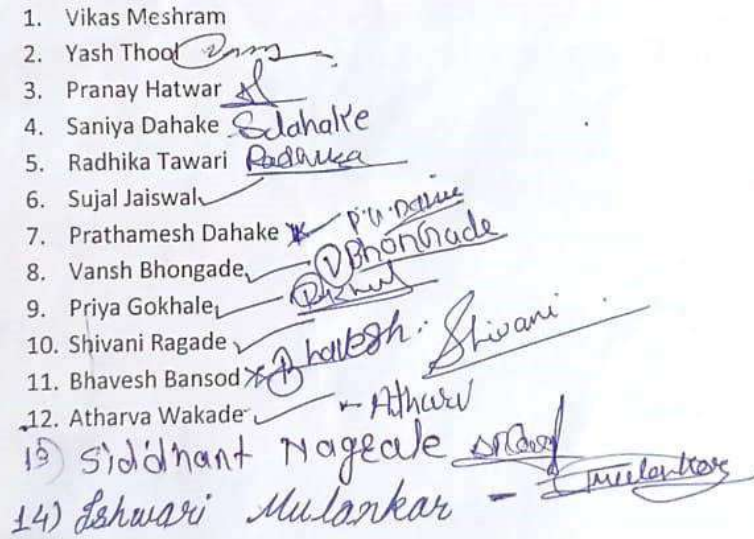 1. Vikas Meshram
2. Yash Thool
3. Pranay Hatwar
4. Saniya Dahake Sdahake
5. Radhika Tawari Radhika
6. Sujal Jaiswal
7. Prathamesh Dahake
8. Vansh Bhongade VBhonGade
9. Priya Gokhale
10. Shivani Ragade Shivani
11. Bhavesh Bansod Bhavesh.
12. Atharva Wakade Atharv
13) Siddhant Nageale
14) Ishwari Mulankar - Gmulankar